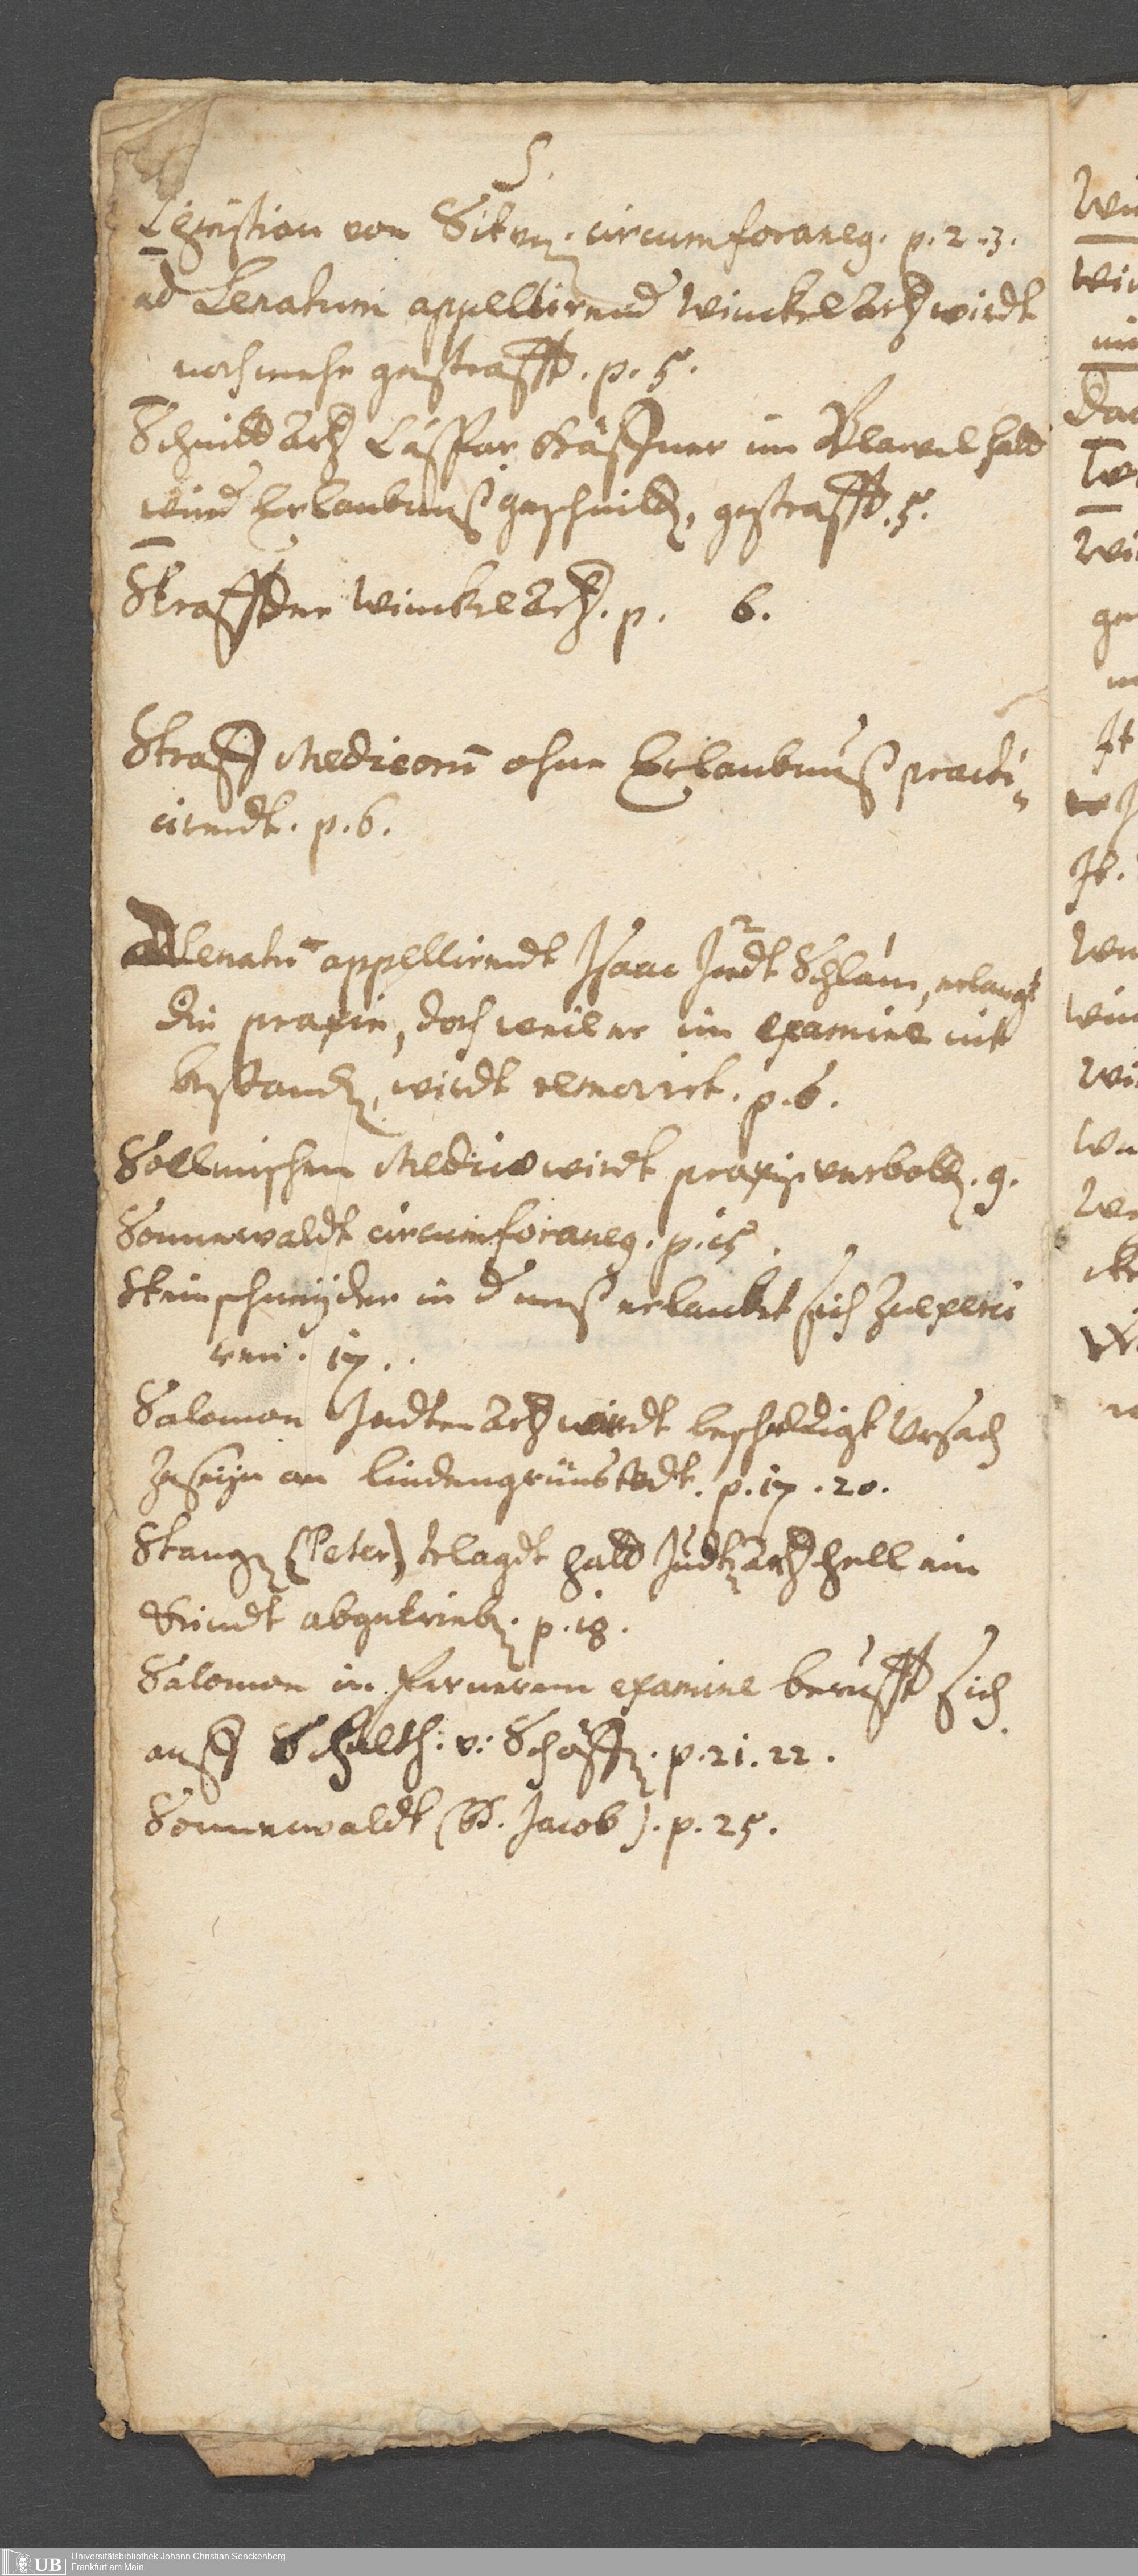 S.
Christian von Siten. circumforaneg. p. 2. 3.
ad Senatum appellirend Winckelartz wirdt
noch mehr gestrafft. p. 5.
Schnittartz Caspar im halb
wied Erlaubnuß geschnitt, gestrafft. 5.
Straff der Winckelartz. p. 6.
Straff Medicorū ohne Erlaubnuß practi„
cirendt. p. 6.
ad Senatū appellirendt Isaac Judt Schlam, erlangt
die praxin, doch weil er im examine nit
bestanden, wirdt removirt. p. 6.
Sollmischen Medico wirdt praxis verbott. 9.
Sonnewaldt circumforaneg. p. 15.
Steinschneyder in d meß erlaubet sich zu exerci
ren. 17.
Salomon Judten artz wirdt beschuldigt Ursach
zu seyn an p. 17. 20.
Stang (Peter) klagdt Judtartz hell ein
Kindt abgetrieb. p. 18.
Salomon in fernerem examine berufft sich
auff Schulth: v: Schöff. p. 21. 22.
Sonnewaldt (H. Jacob). p. 25.
UB Universitätsbibliothek Johann Christian Senckenberg
Frankfurt am Main